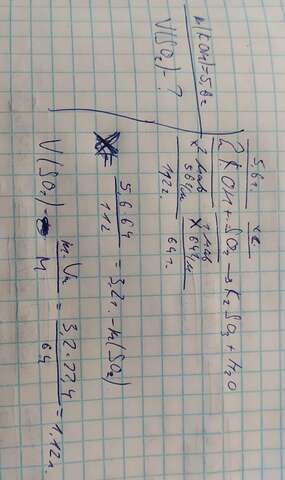 m(KOH)=5,6г
V(SO₂)-?
5,6г. xг.
2KOH+SO₂→K₂SO₃+H₂O
2 моль 1 моль
56г/м 64г/м
112г. 64г.
5,6·64 / 112 = 3,2г.-m(SO₂)
V(SO₂)= m·Vм / M = 3,2·22,4 / 64 = 1,12л.